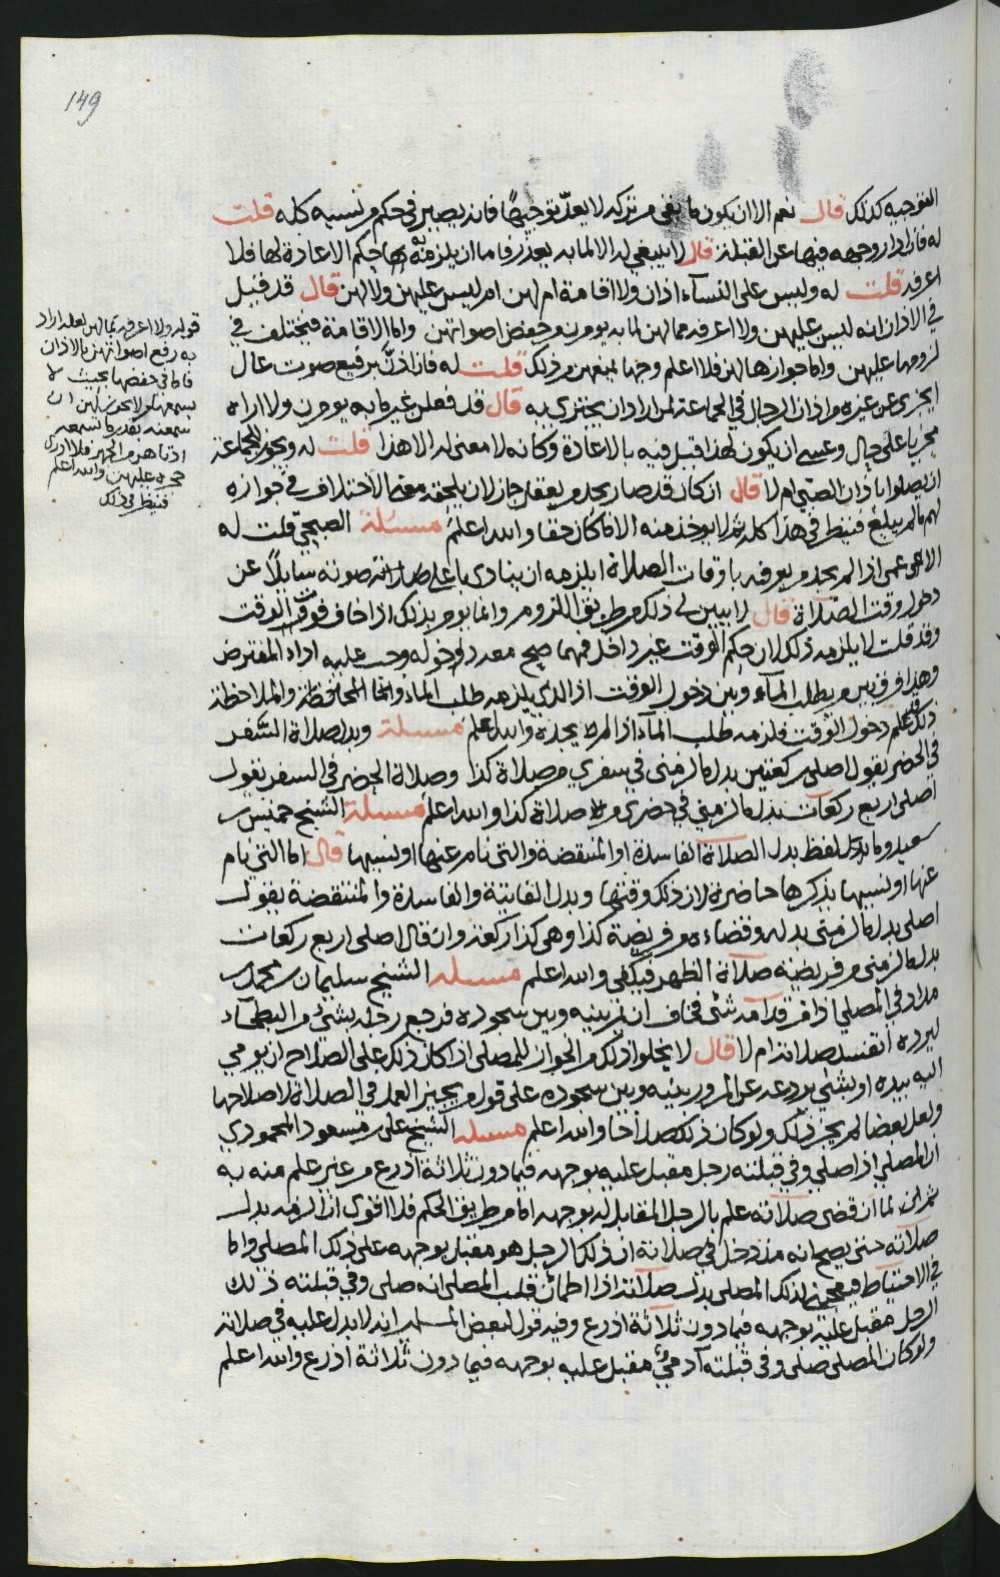 149
التوجيه كذلك قال نعم الا ان يكون ما بقي من تركه لا يعد توجيها فانه يصير في حكم من نسيه كله قلت
له فان ادار وجهه فيها عن القبلة قال لا ينبغي له الا لما به يعذر فاما ان يلزمه بها حكم الاعادة لها فلا
اعرفه قلت له وليس على النسآء اذان ولا اقامة ام لهن ام ليس عليهن ولا لهن قال قد قيل
في الاذان انه ليس عليهن ولا اعرفه مما لهن لما به يومرن من خفض اصواتهن واما الاقامة فيختلف في
لزومها عليهن واما جوازها لهن فلا اعلم وجها يمنعهن من ذلك قلت له فان اذن برفيع صوت عال
ايجزي عن غيره من اذان الرجال في الجماعة لمن اراد ان يجتزي به قال قد فعلن غير ما به يومرن ولا اراه
مجزيا على حال وعسى ان يكون لهذا قيل فيه بالاعادة وكانه لا معنى له الا هذا قلت له ويجوز للجماعة
ان يصلوا باذان الصبي ام لا قال ان كان قد صار بحد من يعقل جاز لان يلحقه معنى الاختلاف في جوازه
لهم ما لم يبلغ فينظر في هذا كله ثم لا يوخذ منه الا ما كان حقا والله اعلم مسئلة الصبحي قلت له
الاعمى اذا لم يجد من يعرفه باوقات الصلاة ايلزمه ان ينادي باعلى صوته سايلا عن
دخول وقت الصلاة قال لا يبين لي ذلك من طريق اللزوم وانما يومر بذلك اذا خاف فوت الوقت
وقد قلت لا يلزمه ذلك لان حكم الوقت غير داخل فمهما صح معه دخوله وجب عليه اداء المفترض
وهذا فرق بين من يطلب المآء وبين دخول الوقت اذ الذي يلزمه طلب المآء وانما المحافظة والملاحظة
ذلك قد علم دخول الوقت فلزمه طلب المآء اذا لم يجده والله اعلم مسئلة وبدل صلاة السفر
في الحضر يقول اصلي ركعتين بدل ما لزمني في سفري من صلاة كذا وصلاة الحضر في السفر يقول
اصلي اربع ركعات بدل ما لزمني في حضري من صلاة كذا والله اعلم مسئلة الشيخ خميس بن
سعيد وما بدل لفظ بدل الصلاة الفاسدة او المنتقضة والتي نام عنها او نسيها قال اما التي نام
عنها او نسيها بذكرها حاضرة لان ذلك وقتها وبدل الفايتة والفاسدة والمنتقضة يقول
اصلي بدل ما لزمني بدله وقضاءه من فريضة كذا وهي كذا ركعة وان قال اصلي اربع ركعات
بدل ما لزمني من فريضة صلاة الظهر فيكفي والله اعلم مسئله الشيخ سليمان بن محمد بن
مداد في المصلي اذا مر قدامه شئ فخاف ان يمر بينه وبين سجوده فرجع رجله بشئ من البطحاء
ليرده اتفسد صلاته ام لا قال لا يخلو ذلك من الجواز للمصلي اذا كان ذلك على الصلاح ان يومي
اليه بيده او بشئ يردعه عن المرور بينه وبين سجوده على قول من يجيز العمل في الصلاة لاصلاحها
ولعل بعضا لم يجز ذلك ولو كان ذلك صلاحا والله اعلم مسئله الشيخ علي بن مسعود المحمودي
ان المصلي اذا صلى وفي قبلته رجل مقبل عليه بوجهه فيما دون ثلاثة اذرع من غير علم منه به
ثم انه لما ان قضى صلاته علم بالرجل المقابل له بوجهه اما من طريق الحكم فلا اقوى ان الزمه بدل
صلاته حتى يصح انه منذ دخل في صلاته ان ذلك الرجل هو مقبل بوجهه على ذلك المصلي واما
في الاحتياط فيعجبني لذلك المصلي بدل صلاته اذا اطمان قلب المصلي انه صلى وفي قبلته ذلك
الرجل مقبل عليه بوجهه فيما دون ثلاثة اذرع وفيه قول لبعض المسلمين انه لا بدل عليه في صلاته
ولو كان المصلي صلى وفي قبلته آدمي مقبل عليه بوجهه فيما دون ثلاثة اذرع والله اعلم
قوله ولا اعرفه مما لهن لعله اراد
به رفع اصواتهن بالاذان
فاما في خفضها بحيث لا
يسمعهن
سمعنه بقدر ما تسمعه
اذناها من الجهر فلا ادري
حجره عليهن والله اعلم
فينظر في ذلك